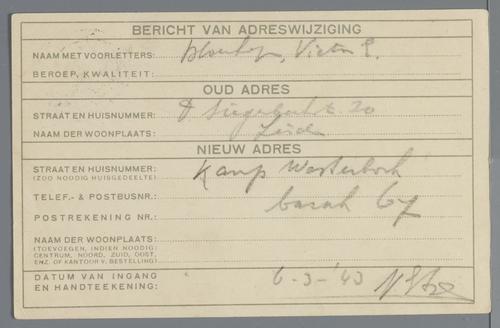 BERICHT VAN ADRESWIJZIGING
NAAM MET VOORLETTERS: Victor E.
BEROEP, KWALITEIT:
OUD ADRES
STRAAT EN HUISNUMMER: 20
NAAM DER WOONPLAATS: Leiden
NIEUW ADRES
STRAAT EN HUISNUMMER: Kamp Westerbork
(ZOO NOODIG HUISGEDEELTE)
TELEF.- & POSTBUSNR.: barak 67
POSTREKENING NR.:
NAAM DER WOONPLAATS:
(TOEVOEGEN, INDIEN NOODIG:
CENTRUM, NOORD, ZUID, OOST,
ENZ. OF KANTOOR V. BESTELLING)
DATUM VAN INGANG 6-3-'43
EN HANDTEEKENING: